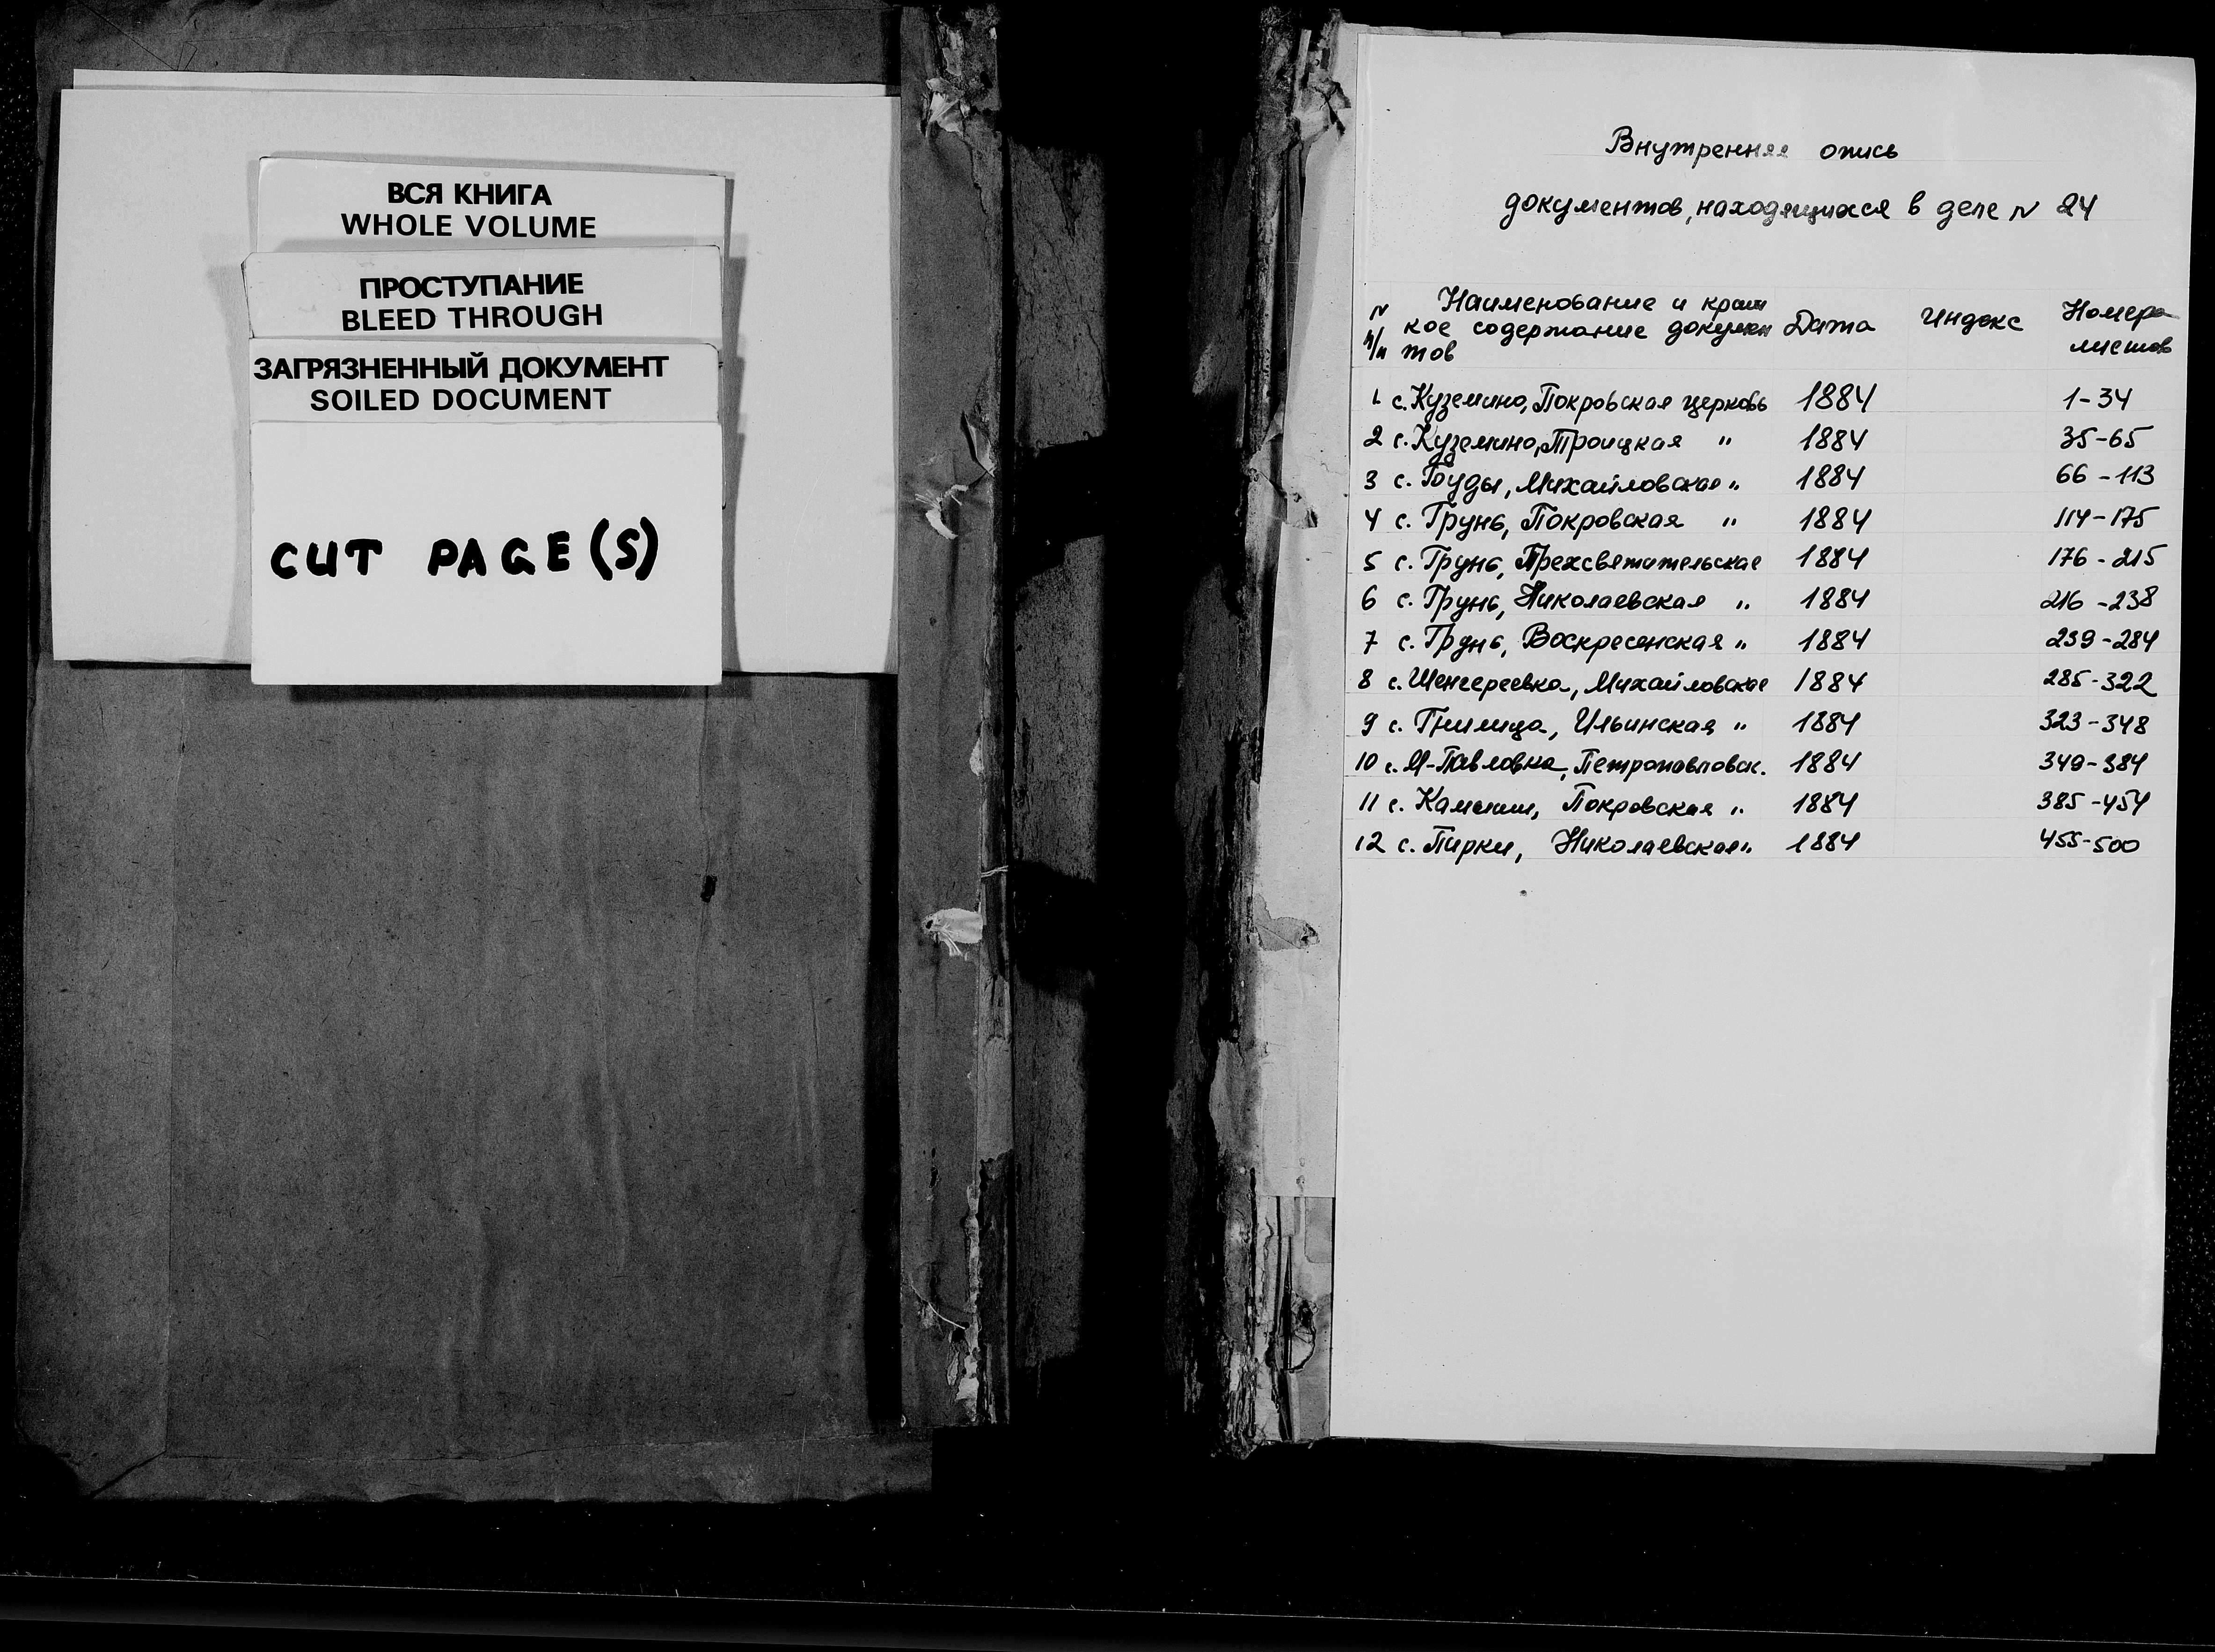 ВСЯ КНИГА
WHOLE VOLUME
ПРОСТУПАНИЕ
BLEED THROUGH
ЗАГРЯЗНЕННЫЙ ДОКУМЕНТ
SOILED DOCUMENT
CUT PAGE(S)
Внутренняя опись
документов, находящихся в деле N 24
N п/п Наименование и крат кое содержание докумен тов Дата Индекс Номера листов
1 с. Куземино, Покровская церковь 1884 1-34
2 с. Куземино, Троицкая " 1884 35-65
3 с. Буды, Михайловская " 1884 66-113
4 с. Грунь, Покровская " 1884 114-175
5 с. Грунь, Трехсвятительская 1884 176-215
6 с. Грунь, Николаевская " 1884 216-238
7 с. Грунь, Воскресенская " 1884 239-284
8 с. Шенгереевка, Михайловская 1884 285-322
9 с. Гнилица, Ильинская " 1884 323-348
10 с. М-Павловка, Петропавловск. 1884 349-384
11 с. Камыши, Покровская " 1884 385-454
12 с. Пирки, Николаевская " 1884 455-500